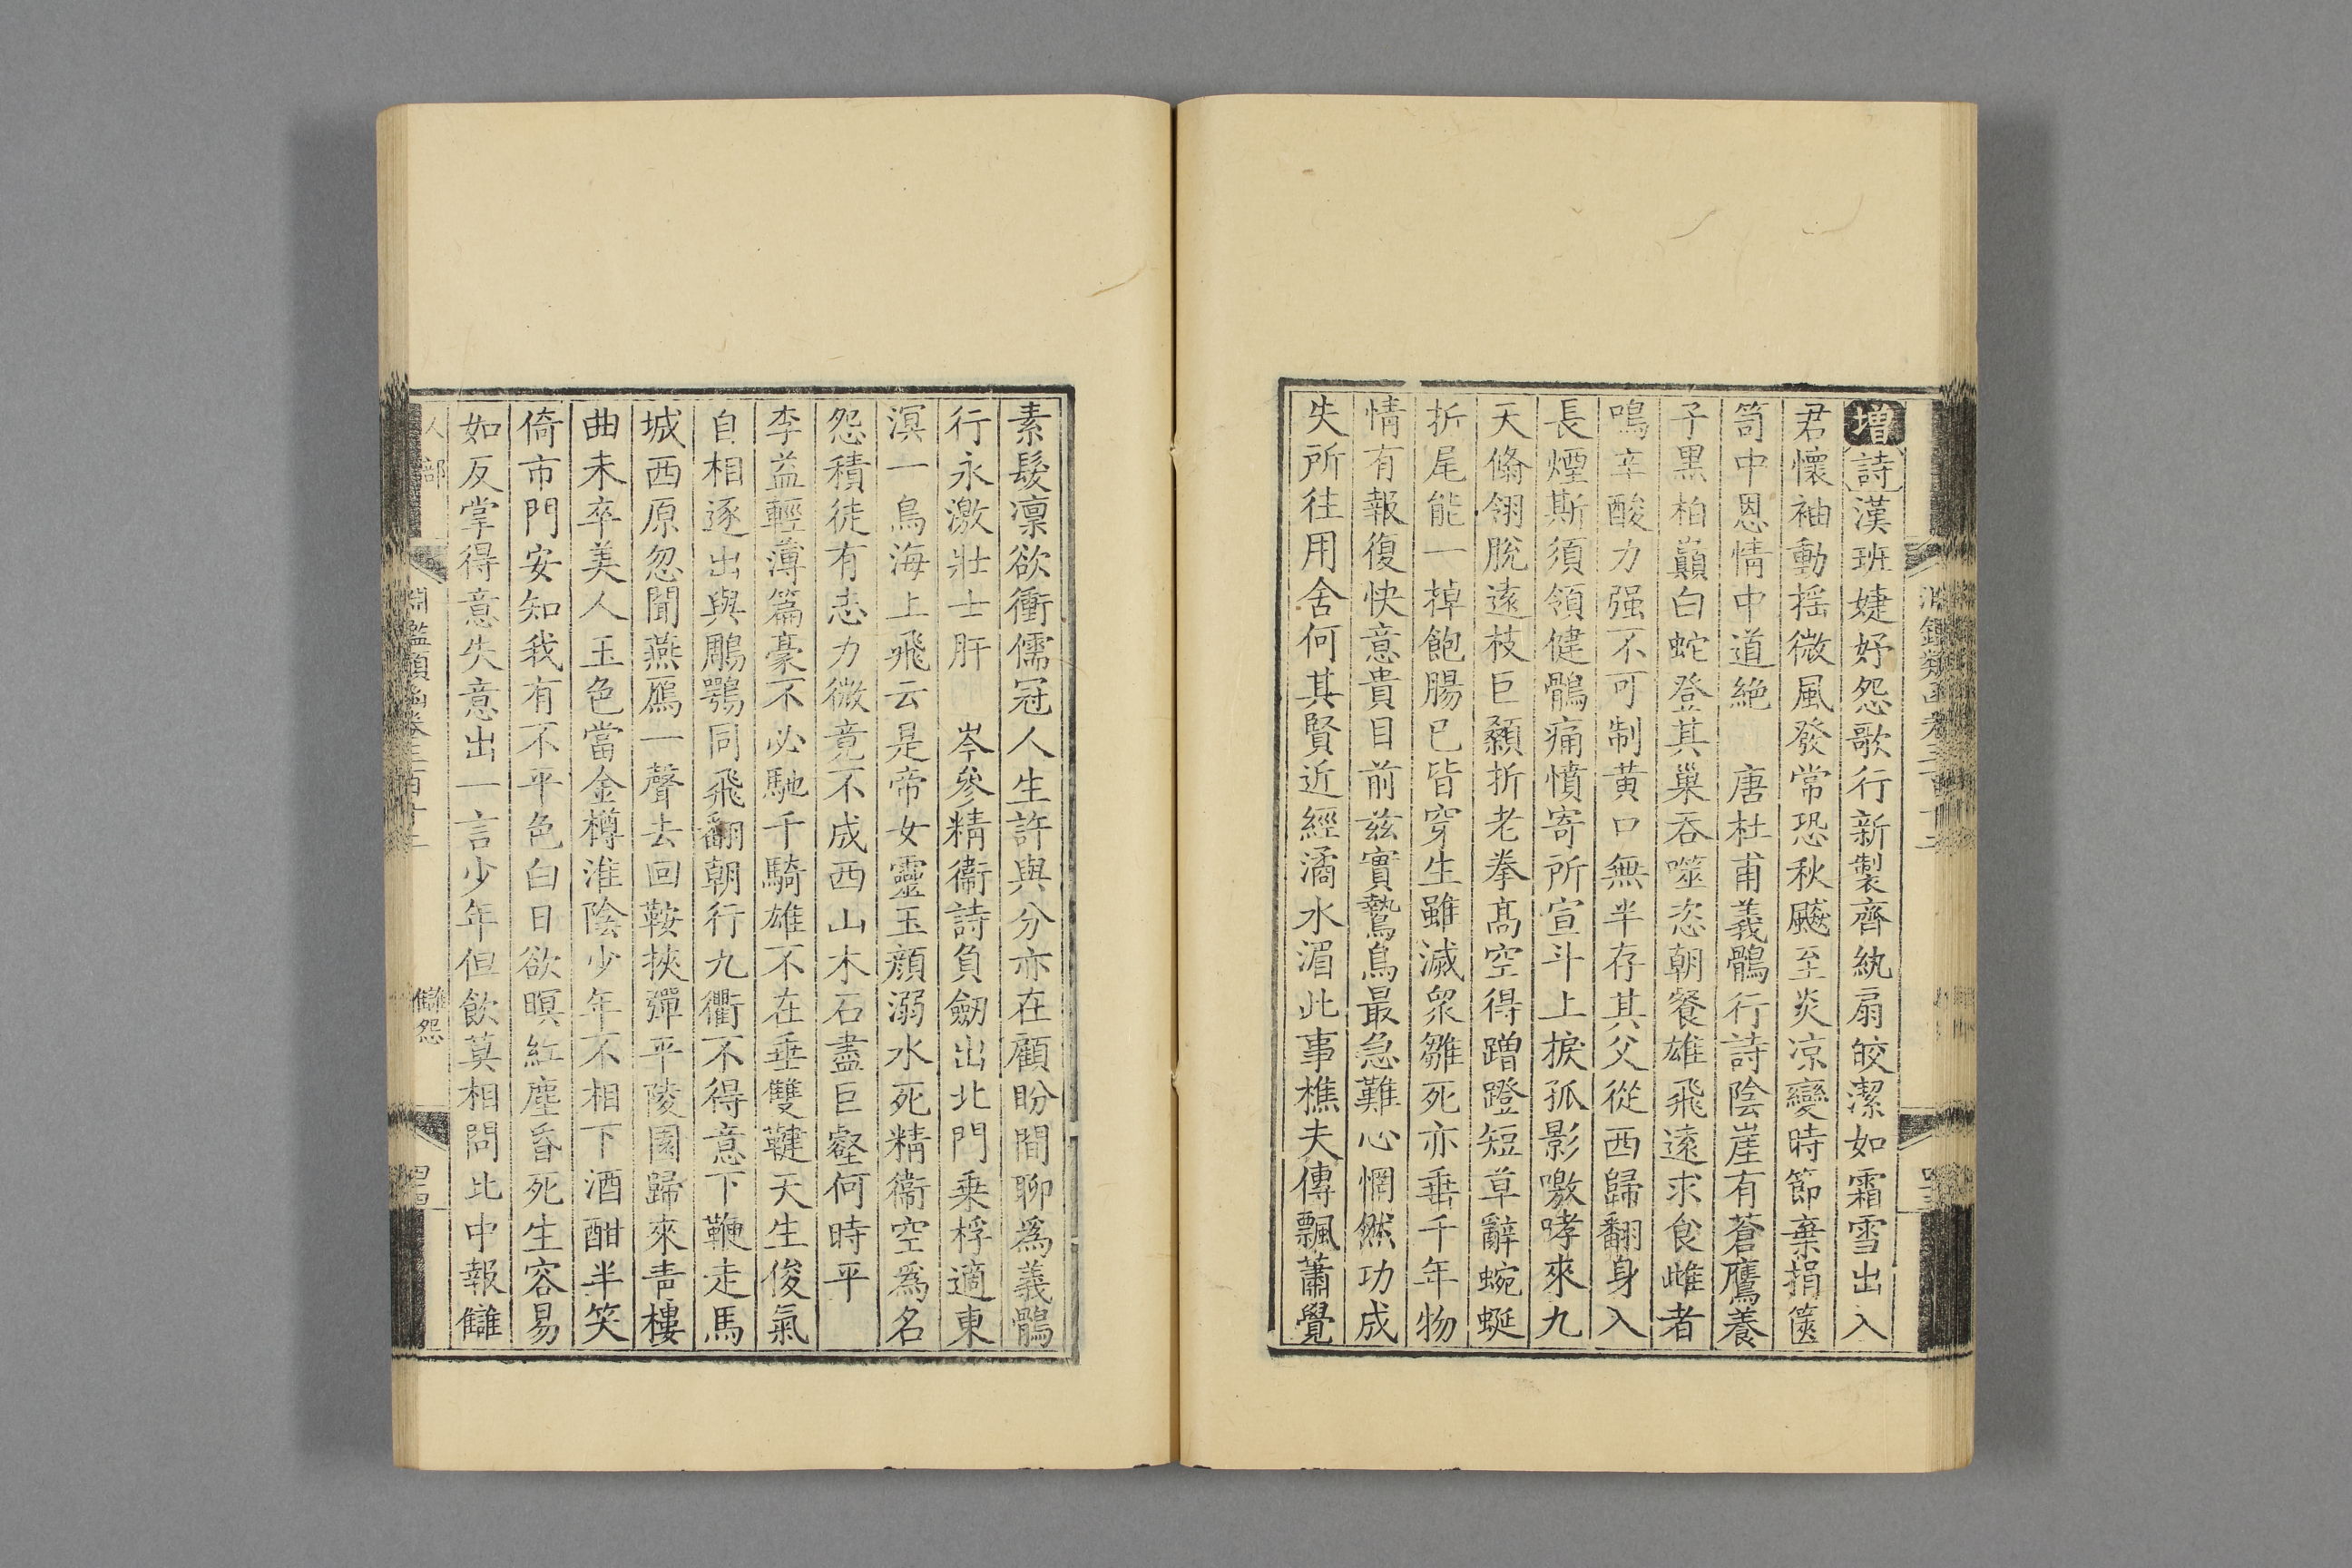 增詩漢班婕妤怨歌行新製齊紈扇皎潔如霜雪出入
君懷袖動搖微風發常恐秋飈至炎凉變時節棄捐篋
笥中恩情中道絶　唐杜甫義鶻行詩陰崖有蒼鷹養
子黑柏巔白蛇登其巢吞噬恣朝餐雄飛遠求食雌者
鳴辛酸力强不可制黃口無半存其父從西歸翻身入
長煙斯須領健鶻痛憤寄所宣斗上捩孤影噭哮來九
天脩翎脫遠枝巨顙折老拳髙空得蹭蹬短草辭蜿蜒
折尾能一掉飽腸已皆穿生雖滅眾雛死亦垂千年物
情有報復快意貴目前茲實鷙鳥最急難心惘然功成
失所往用舍何其賢近經潏水湄此事樵夫傳飄蕭覺
素髮凛欲衝儒冠人生許與分亦在顧盼間聊爲義鶻
行永激壯士肝　岑參精衞詩負劒出北門乗桴適東
溟一鳥海上飛云是帝女靈玉顔溺水死精衞空爲名
怨積徒有志力微竟不成西山木石盡巨壑何時平
李益輕薄篇豪不必馳千騎雄不在垂雙鞬天生俊氣
自相逐出與鵰鶚同飛翻朝行九衢不得意下鞭走馬
城西原忽聞燕鴈一聲去回鞍挾彈平陵園歸來青樓
曲未卒美人玉色當金樽淮陰少年不相下酒酣半笑
倚市門安知我有不平色白日欲暝紅塵昏死生容易
如反掌得意失意出一言少年但飲莫相問此中報讎
人部
淵鑑類函卷三百十二
讎怨